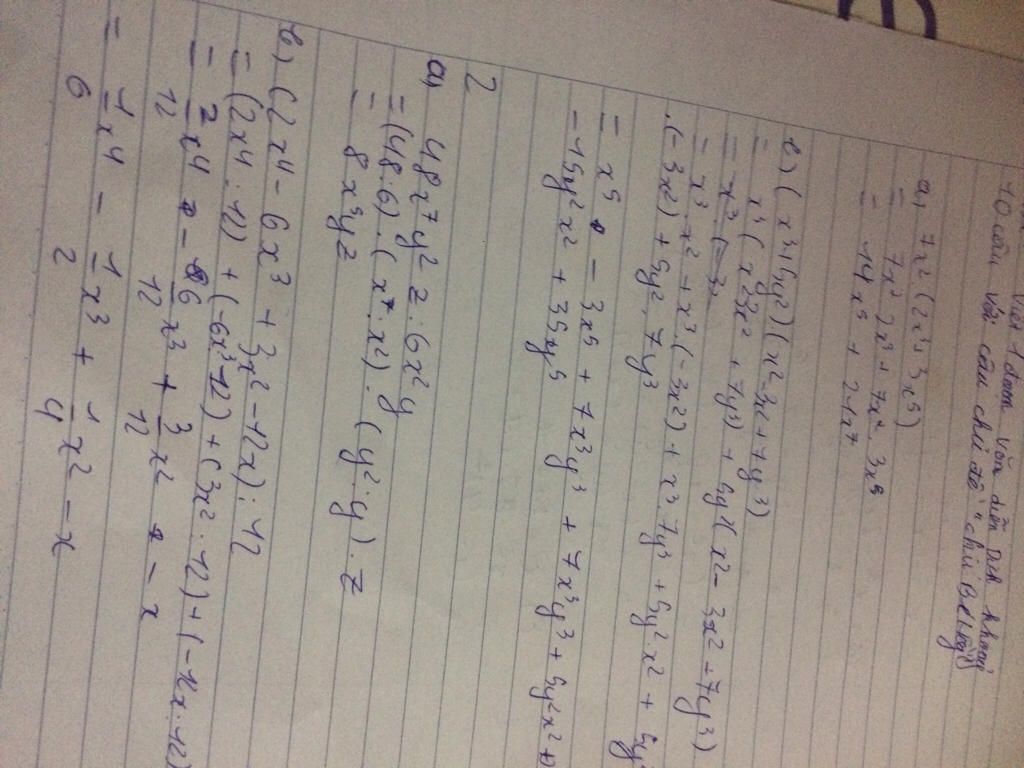 Viết 1 đoạn văn diễn dịch khoảng
10 câu với câu chủ đề "
a, 7x² (2x³ + 3x⁵)
= 7x² . 2x³ + 7x² . 3x⁵
= 14x⁵ + 21x⁷
b) (x³ + 5y²) (x² - 3x + 7y³)
= x³ ( x² 3x² + 7y³) + 5y² (x² - 3x² + 7y³)
= x³ . x² + x³ . (-3x²) + x³ . 7y³ + 5y² x² + 5y²
. (-3x²) + 5y² . 7y³
= x⁵ - 3x⁵ + 7x³y³ + 7x³y³ + 5y²x² +
- 15y²x² + 35y⁵
2
a, 48x⁷y²z : 6x²y
= (48 : 6) . (x⁷ : x²) . (y² : y) . z
= 8x⁵yz
b) (2x⁴ - 6x³ + 3x² - 12x) : 12
= (2x⁴ : 12) + (-6x³ : 12) + (3x² : 12) + (-12x : 12)
= 2/12 x⁴ - 6/12 x³ + 3/12 x² - x
= 1/6 x⁴ - 1/2 x³ + 1/4 x² - x